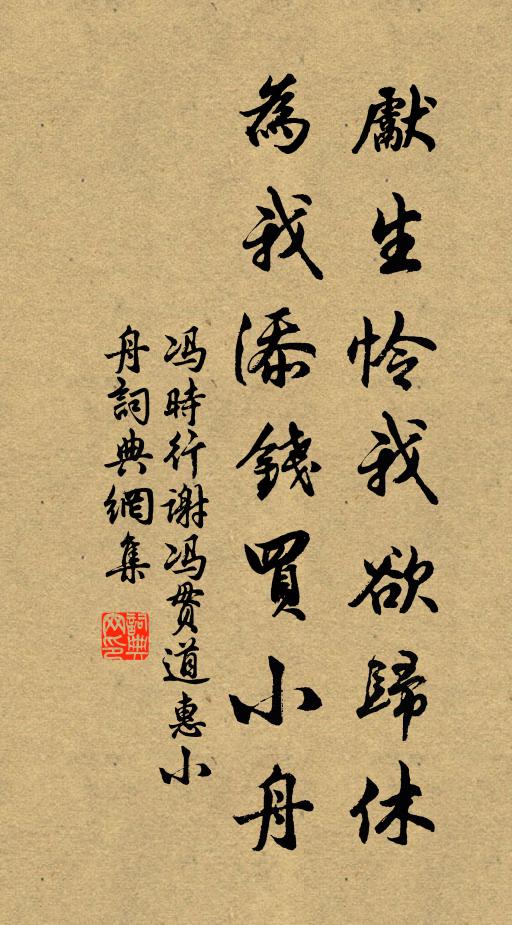 獻生怜我欲歸休
為我添錢買小舟
冯時行谢冯贯道惠小
舟詞典網集
詞典網印